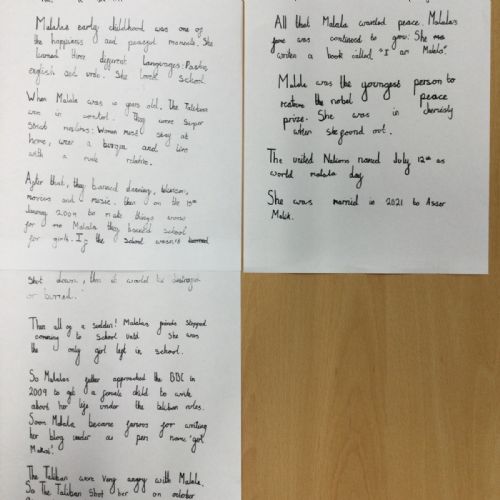 Malalas early childhood was one of
the happiness and peacful moments. She
learned three different languages: Pashto,
english and urdu. She loved school.
When Malala was 10 years old. The Taliban
were in control. They were super
strict muslims: Women must stay at
home, wear a burqua and live
with a male relative.
After that, they banned dancing, television,
movies and music. then on the 15th
January 2009 to make things worse
for me Malala they banned school
for girls. If the school wasn't
shut down, then it would be destroyed
or burned.
Then all of a sudden! Malalas friends stopped
comming to school until she was
the only girl left in school.
So Malalas father approached the BBC in
2009 to get a female child to write
about her life under the taliban rules.
Soon Malala became famous for writing
her blog under a pen name 'gul
Makai'.
The Taliban were very angry with Malala.
So The Taliban shot her on october
All that Malala wanted peace. Malala's
fame was continued to grow. She
writen a book called "I am Malala".
Malala was the youngest person to
the nobel peace
prize. She was in chemisty
when she found out.
The united Nations named July 12th as
world malala day
She was married in 2021 to Asser
Malik.